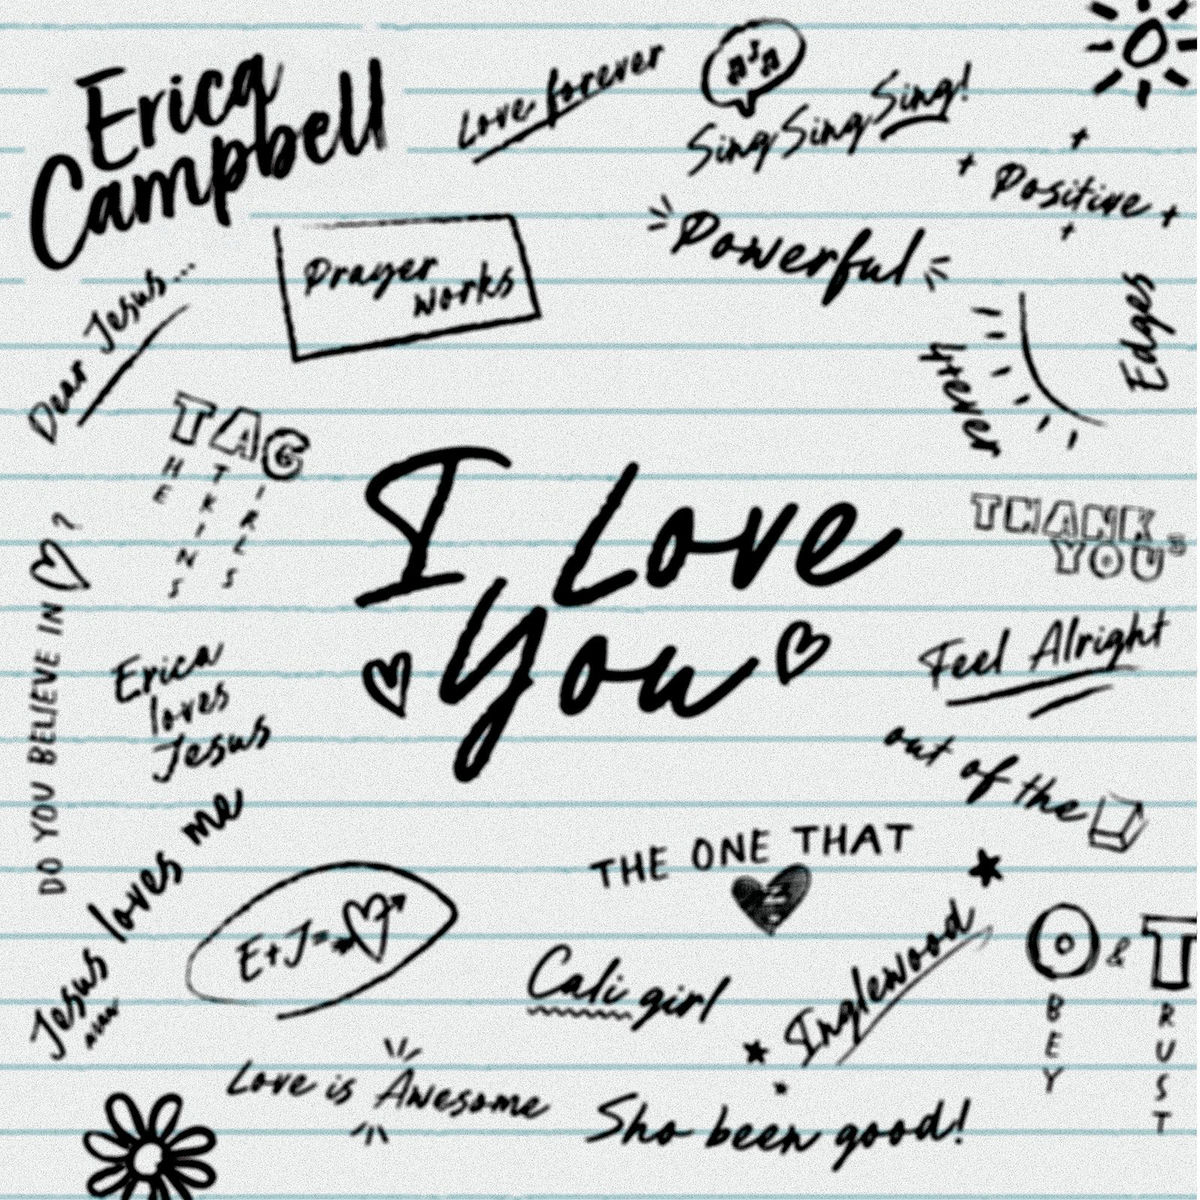 Erica
Campbell
Love forever
Sing Sing Sing!
Positive
Powerful
Prayer
works
Dear Jesus...
4rever
Edges
TAG
THE
ATKINS
GIRLS
I Love
You
THANK
YOU
DO YOU BELIEVE IN ?
Erica
loves
Jesus
Feel Alright
out of the
Jesus loves me
THE ONE THAT
E+J=
Cali girl
Inglewood
O & T
OBEY
TRUST
Love is Awesome
Sho been good!